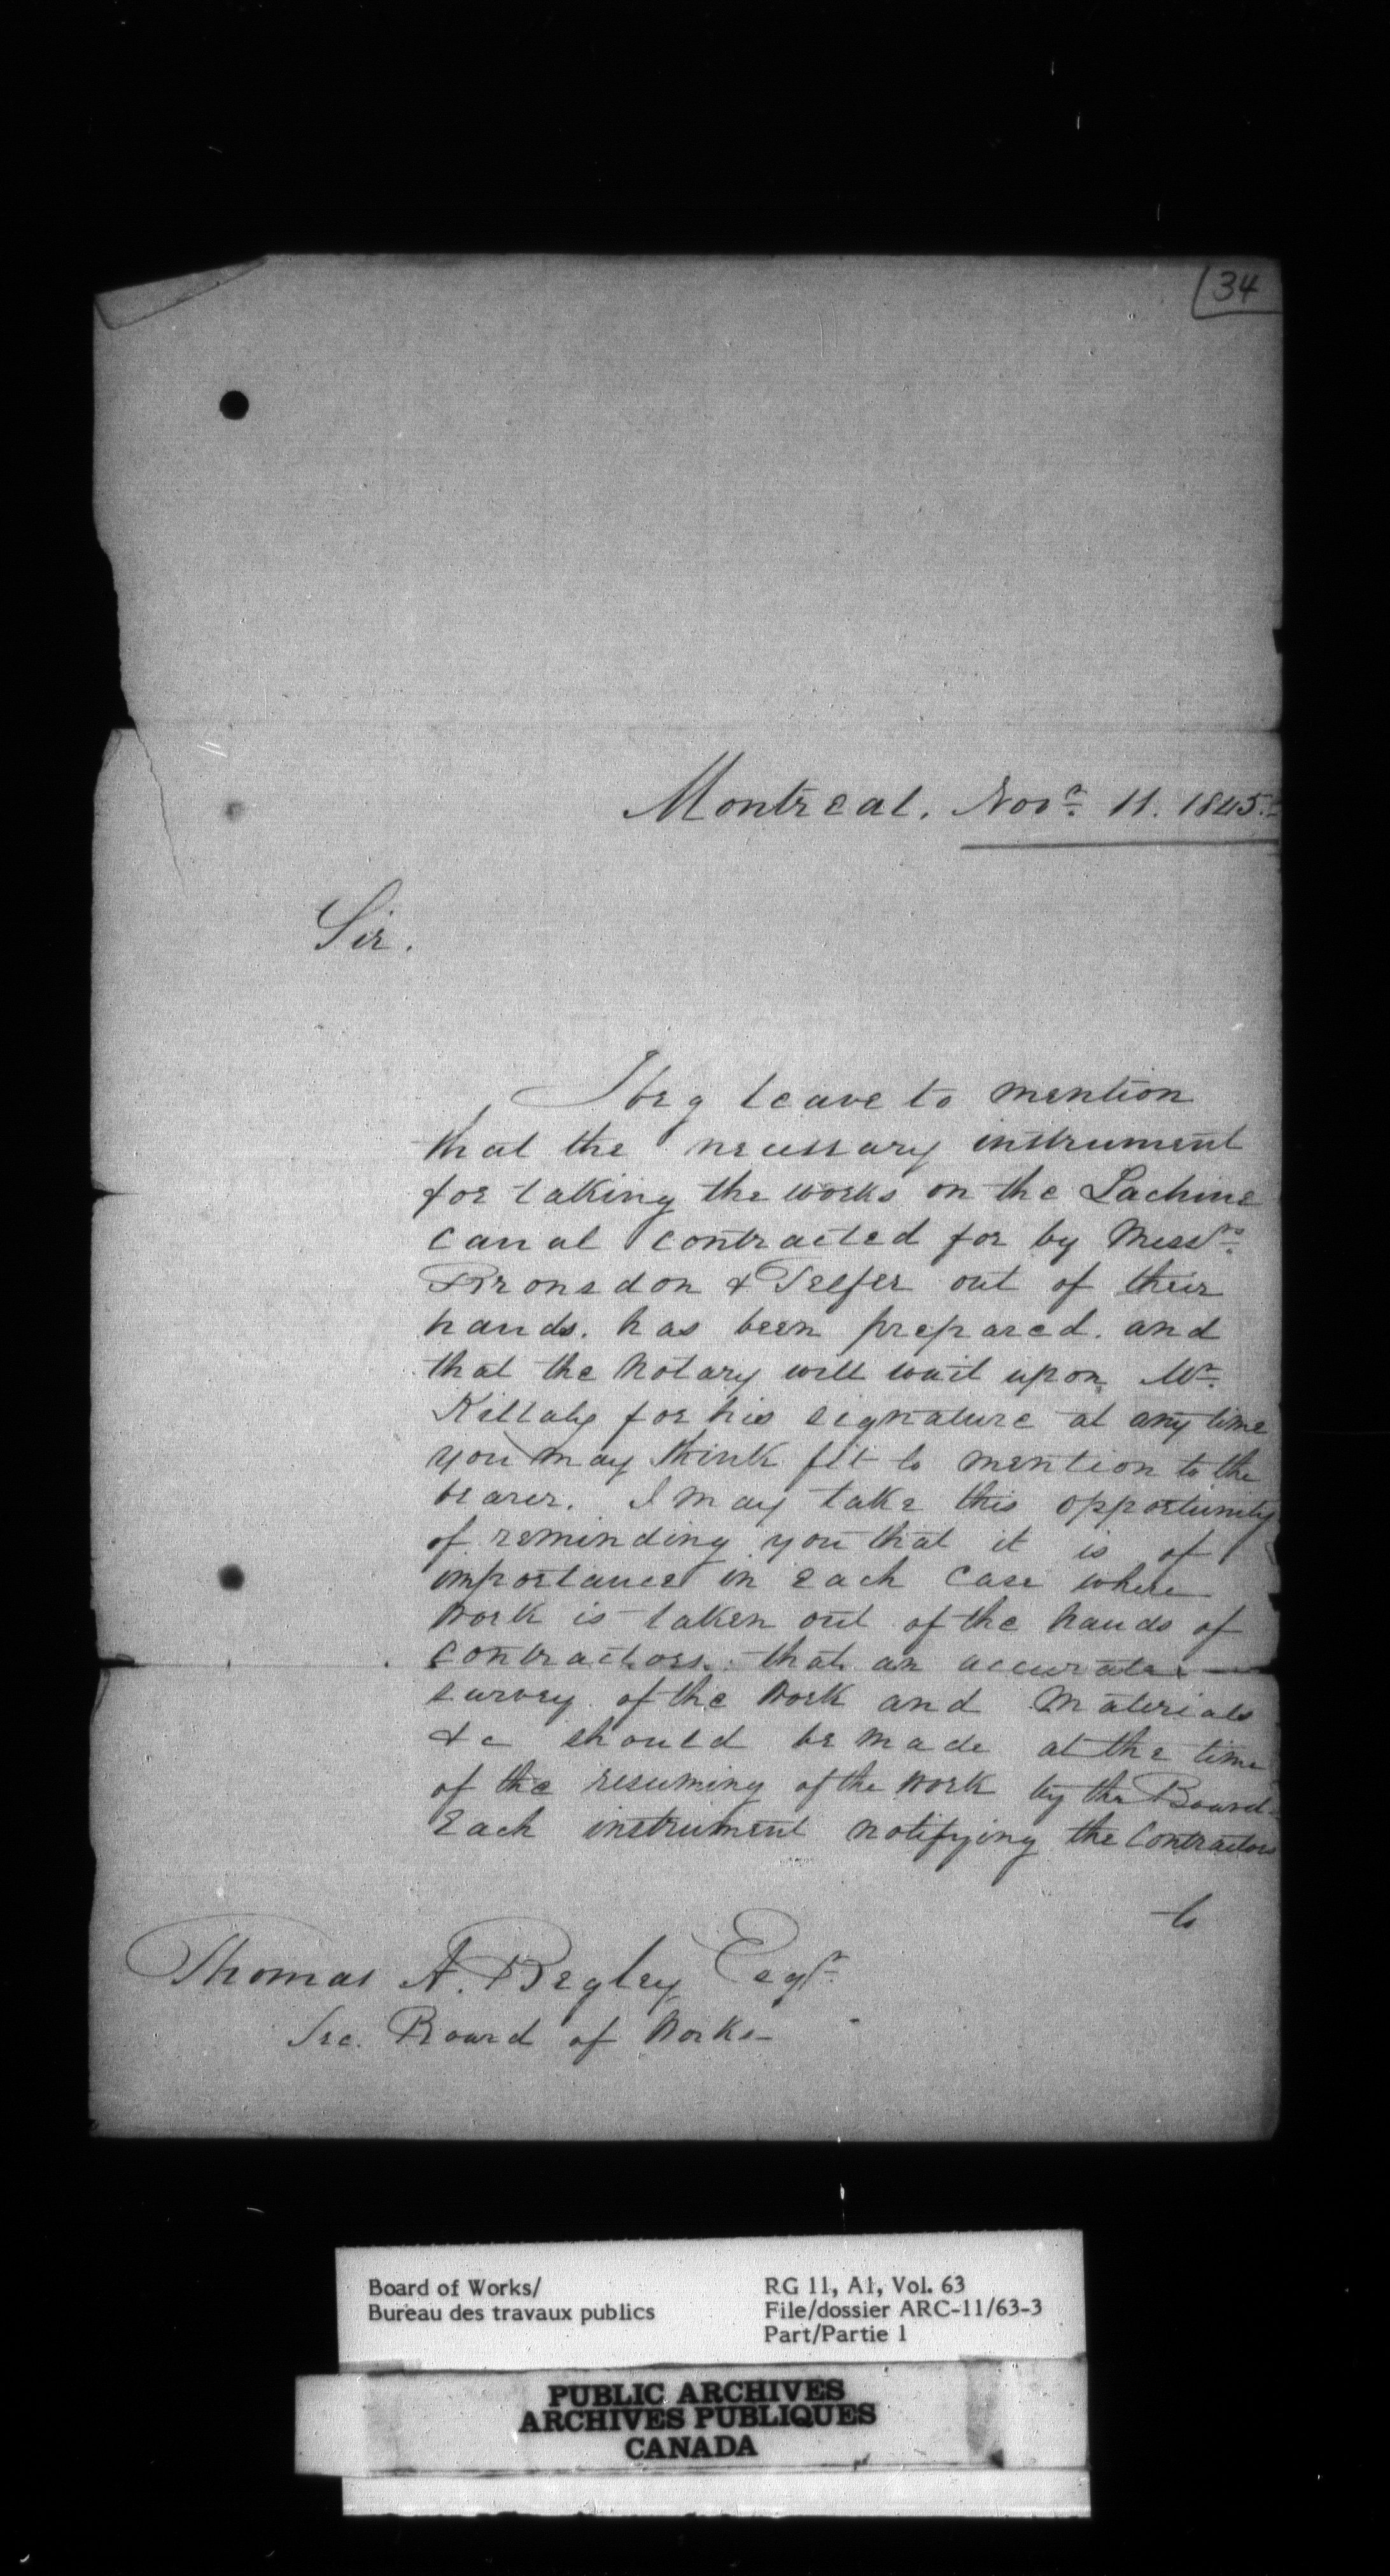 34
Montreal. Novr. 11. 1845.
Sir.
I beg leave to mention
that the necessary instrument
for taking the works on the Lachine
Canal contracted for by Messrs.
Bronsdon & Telfer out of their
hands. has been prepared. and
that the Notary will wait upon Mr.
Killaly for his signature at any time
you may think fit to mention to the
bearer. I may take this opportunity
of reminding you that it is of
importance in each case where
work is taken out of the hands of
contractors. that an accurate
survey of the work and materials
&c should be made at the time
of the resuming of the work by the Board
Each instrument notifying the Contractors
to
Thomas A. Begley Esqr.
Sec. Board of Works
Board of Works/
Bureau des travaux publics
RG 11, A1, Vol. 63
File/dossier ARC-11/63-3
Part/Partie 1
PUBLIC ARCHIVES
ARCHIVES PUBLIQUES
CANADA